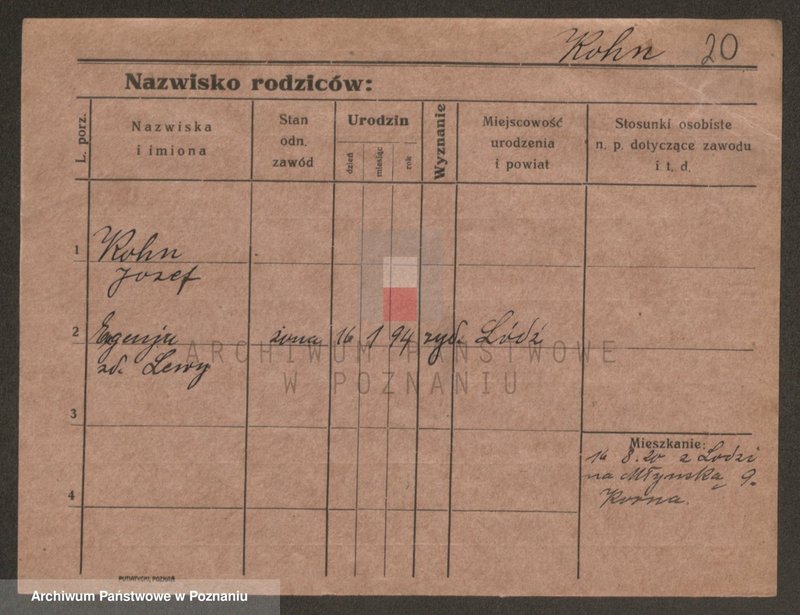 Kohn 20
Nazwisko rodziców:
L. porz.
Nazwiska
i imiona
Stan
odn.
zawód
Urodzin
dzień
miesiąc
rok
Wyznanie
Miejscowość
urodzenia
i powiat
Stosunki osobiste
n. p. dotyczące zawodu
i t. d.
1 Kohn
Jozef
2 Egenja żona 16 1 94 zyd. Łódź
zd. Lewy
ARCHIWUM PAŃSTWOWE
W POZNANIU
3
Mieszkanie:
16 8.20 z Lodzi
na Młynską 9.
4
PUTIATYCKI, POZNAŃ
Archiwum Państwowe w Poznaniu